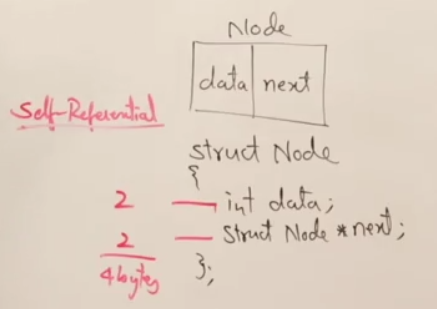 Node
data next
Self-Referential
struct Node
{
2 int data;
2 struct Node *next;
4 bytes };